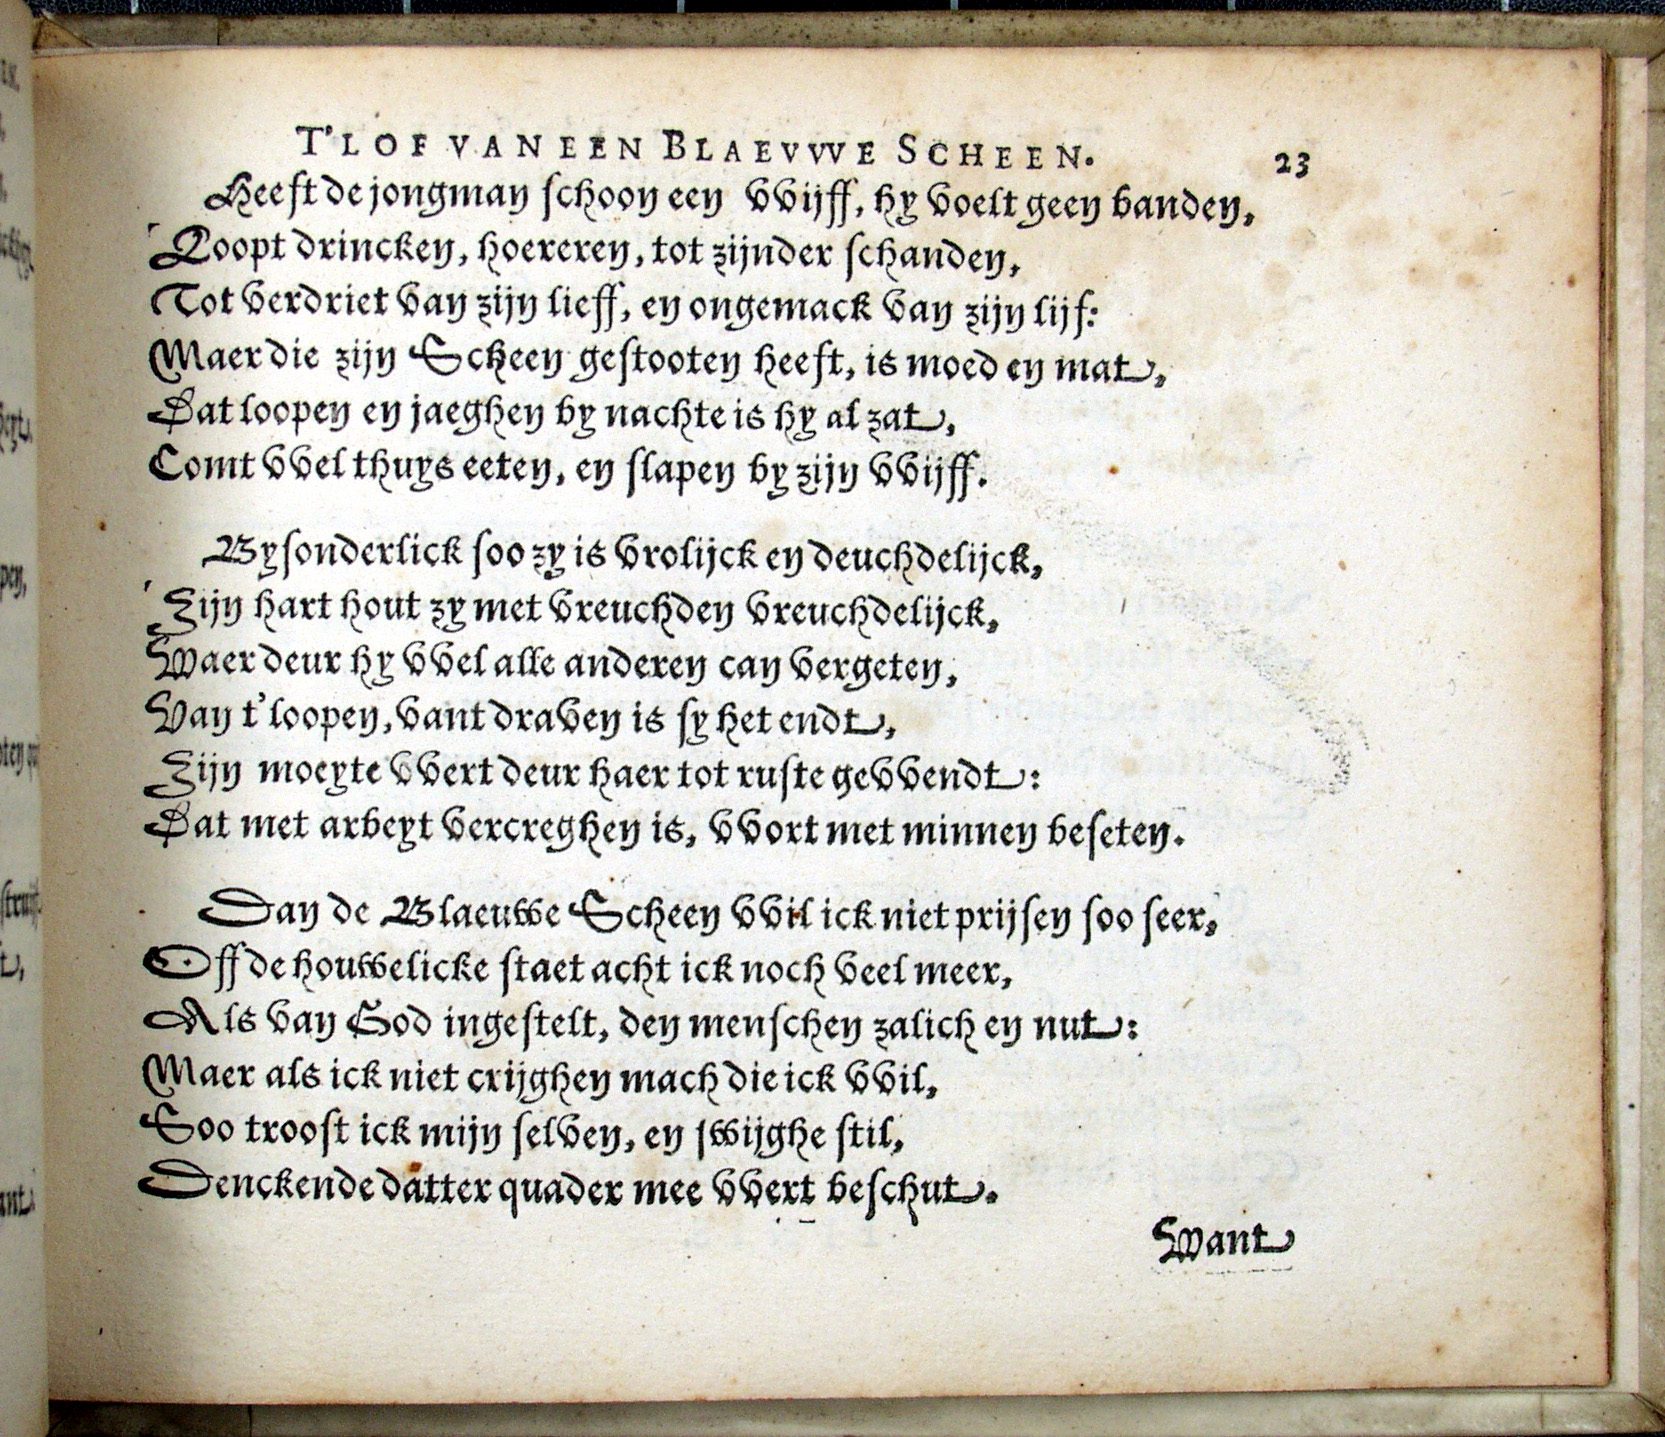 T'LOF VAN EEN BLAEVWE SCHEEN. 23
Heeft de jongman schoon een vvijff, hy voelt geen banden,
Loopt drincken, hoereren, tot zijnder schanden,
Tot verdriet van zijn lieff, en ongemack van zijn lijf:
Maer die zijn Scheen gestooten heeft, is moed en mat,
Dat loopen en jaeghen by nachte is hy al zat,
Comt vvel thuys eeten, en slapen by zijn vvijff.
Bysonderlick soo zy is vrolijck en deuchdelijck,
Zijn hart hout zy met vreuchden vreuchdelijck,
Waer deur hy vvel alle anderen can vergeten,
Van t'loopen, vant draven is sy het endt,
Zijn moeyte vvert deur haer tot ruste gevvendt:
Dat met arbeyt vercreghen is, vvort met minnen beseten.
Dan de Blaeuwe Scheen vvil ick niet prijsen soo seer,
Off de houwelicke staet acht ick noch veel meer,
Als van God ingestelt, den menschen zalich en nut:
Maer als ick niet crijghen mach die ick vvil,
Soo troost ick mijn selven, en swijghe stil,
Denckende datter quader mee vvert beschut.
Want